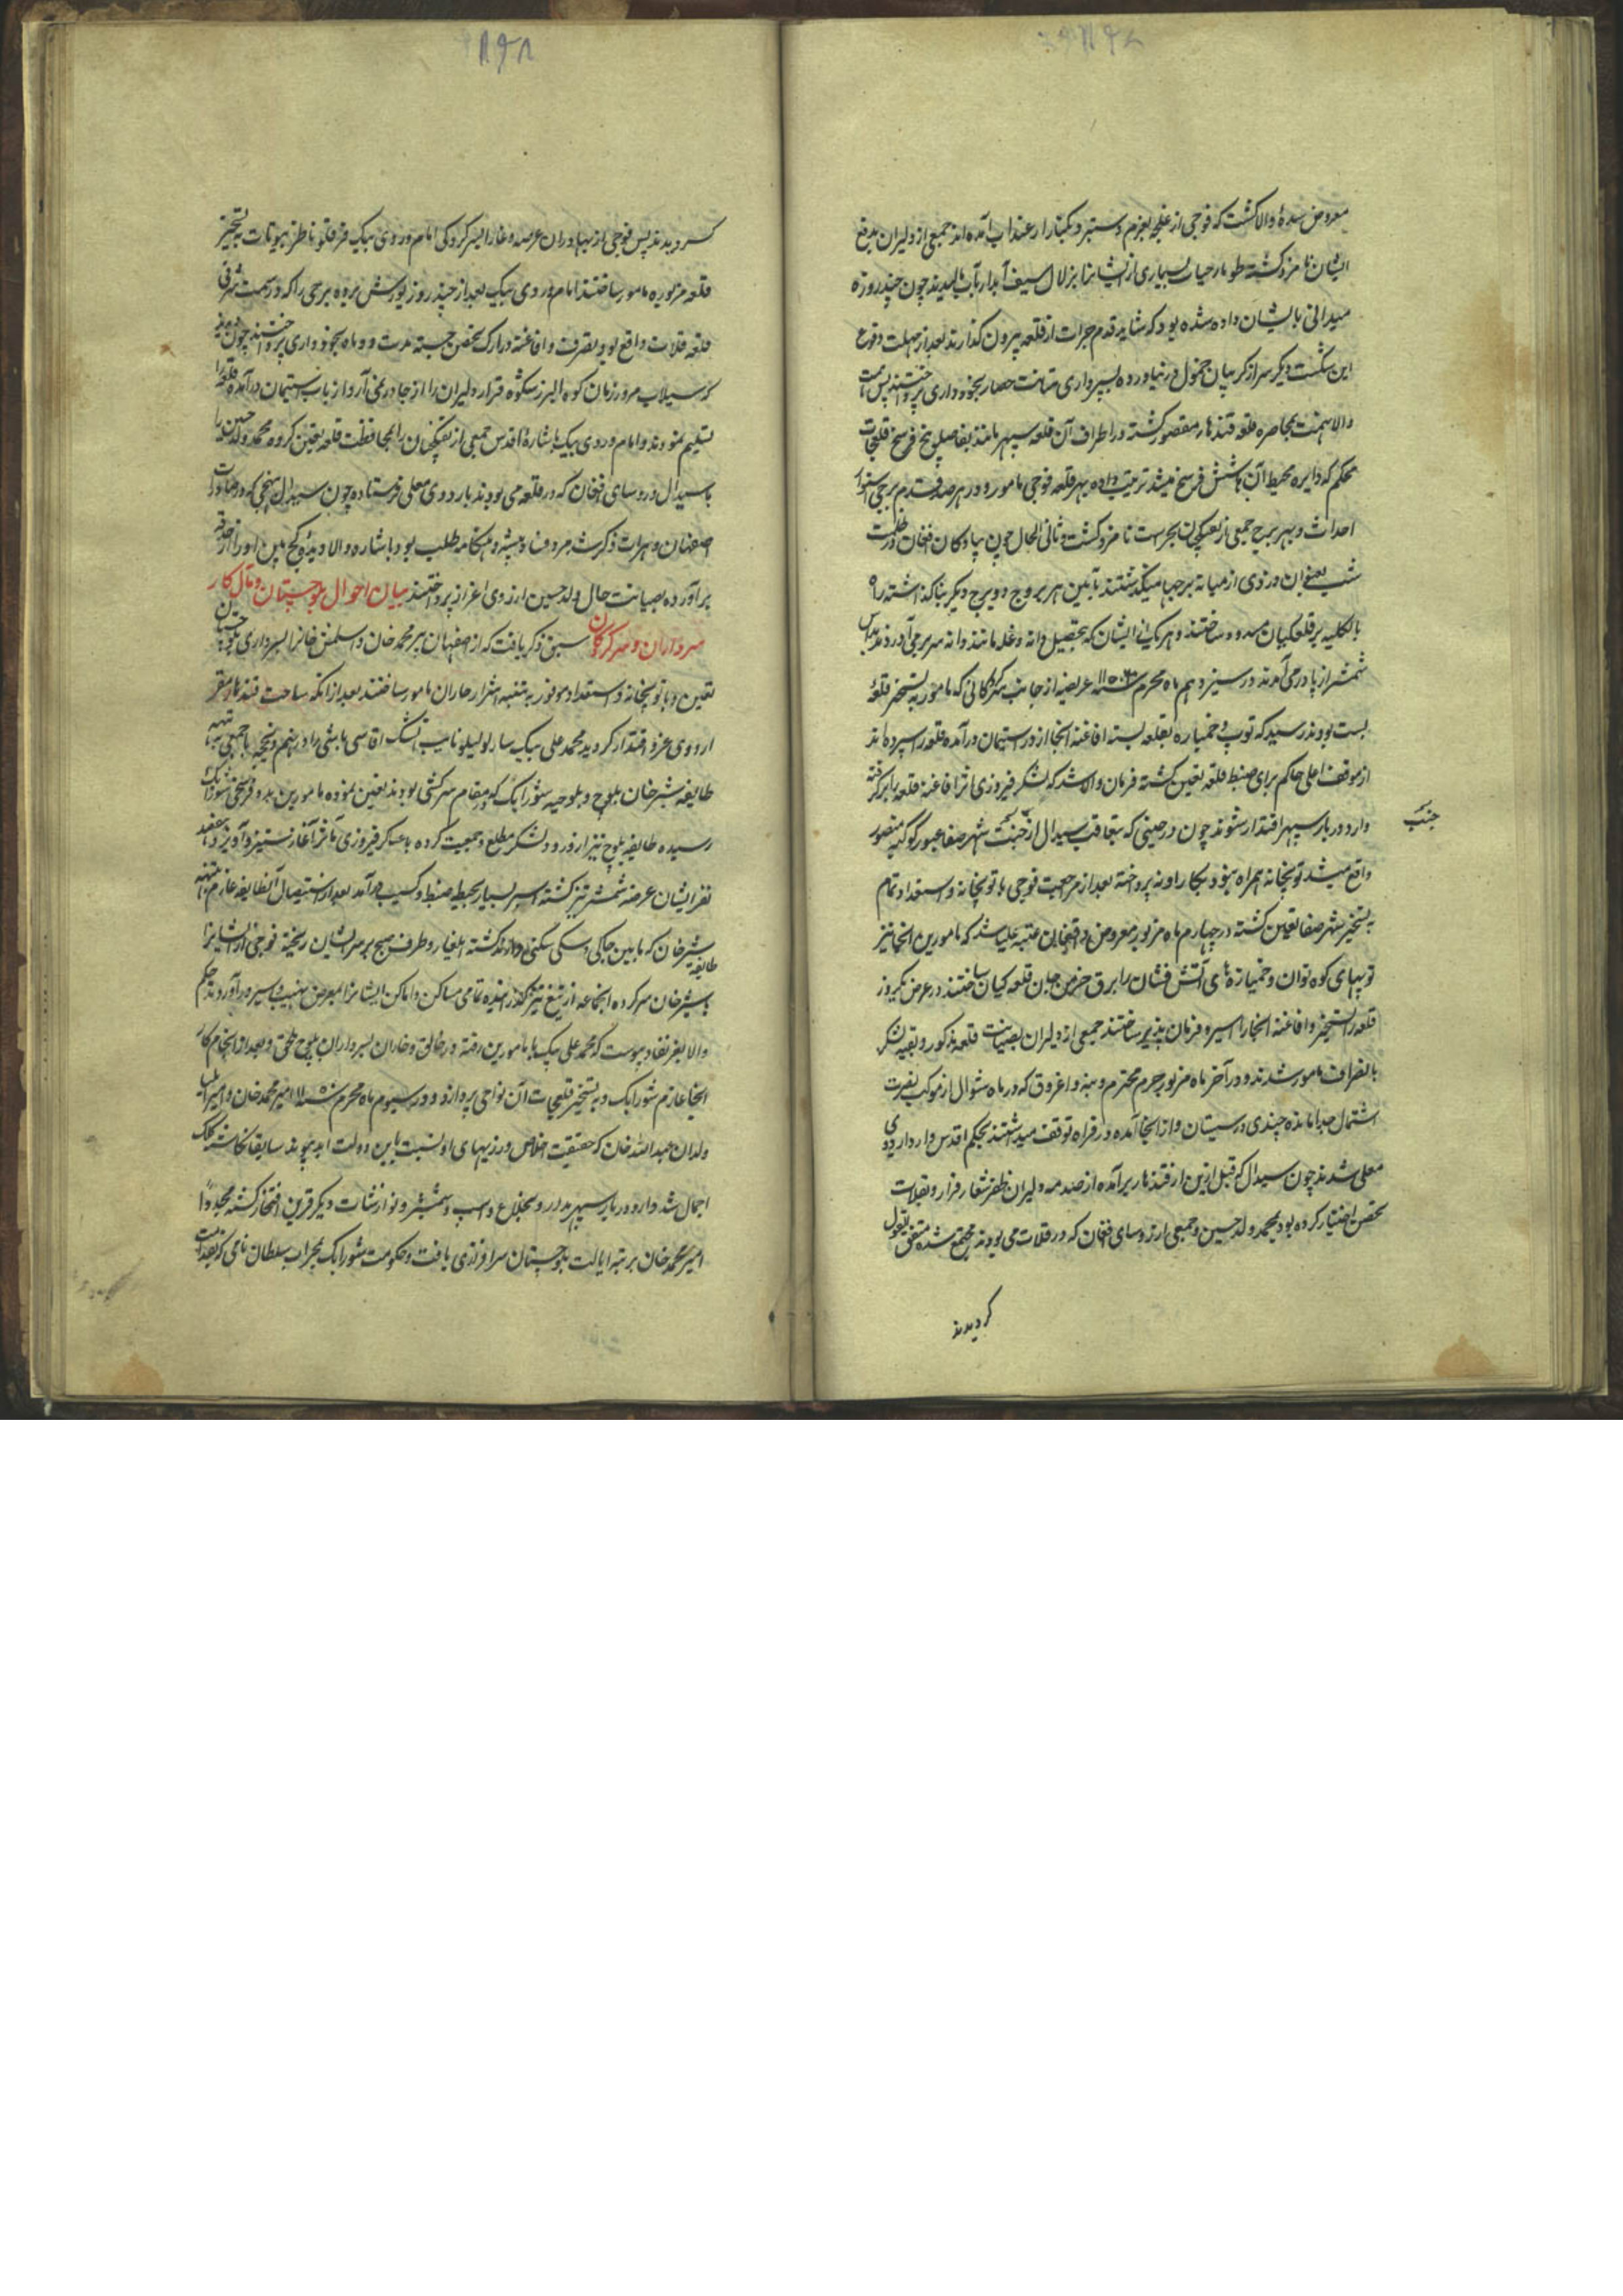 معروض سدهٔ والا کشت که فوجی از غلجه بعزم دستبرد بکنار ارغنداب آمده اند جمعی از دلیران بدفع
ایشان نامزد کشته طومار حیات بسیاری از ایشانرا بزلال سیف آبدار بآب رسانیدند چون چند روزه
میدانی بایشان داده شده بود که شاید قدم جرات از قلعه بیرون گذارند بعد از مهلت وقوع
این شکست دیگر سر از کریبان خمول در نیاورده بسپرداری متانت حصار بخودداری پرداختند پس همت
والا نهمت بمحاصره قلعه قندهار مقصور کشته در اطراف آن قلعه سپهر مانند بفاصله نیم فرسخ قلعجات
محکم که دایره محیط آن شش فرسخ میشد ترتیب داده بهر قلعه فوجی مامور و در هر صد قدم برجی استوار
احداث و بهر برج جمعی از تفنکچیان بحراست نامزد کشت و ثانی الحال چون پیادکان افغان در ظلمت
شب بعنوان دزدی از میانه برجها میگذشتند مابین هر بروج دو برج دیگر بنا گذاشته راه
بالکلیه بر قلعکیان مسدود ساختند و هر یک از ایشان که بتحصیل دانه و غله مانند دانه سر بر می آوردند بداس
شمشیر از پا در می آمدند در سیزدهم ماه محرم سنه ۱۱۵۰ عریضه از جانب سرکردکانی که مامور به تسخیر قلعهٔ
بست بودند رسید که توپ و خمپاره بقلعه بسته افاغنه آنجا از در استیمان درآمده قلعه را سپرده اند
از موقف اعلی حاکم برای ضبط قلعه تعیین کشته فرمان والا شد که لشکر فیروزی اثر افاغنه قلعه را برگرفته
وارد دربار سپهر اقتدار شوند چون در حینی که بتعاقب سیدال از جنب شهر صفا عبور کوکبه منصور
جنب
واقع میشد توپخانه همراه نبود بکار او نپرداخته بعد از مراجعت فوجی با توپخانه و استعداد تمام
به تسخیر شهر صفا تعیین کشته در چهارم ماه مزبور معروض واقفان عتبه علیا شد که مامورین آنجا نیز
توپهای کوه توان و خمپاره های آتش فشان را برق خرمن جان قلعه کیان ساختند در عرض یکروز
قلعه را تسخیر و افاغنه آنجا را اسیر و فرمان پذیر ساختند جمعی از دلیران بصیانت قلعه مذکور و بقیه لشکر
بانصراف مامور شدند و در آخر ماه مزبور حرم محترم و بنه و اغروق که در ماه شوال از موکب نصرت
اشتمال جدا مانده چندی در سیستان و از آنجا آمده در فراه توقف میداشتند بحکم اقدس وارد اردوی
معلی شدند چون سیدال که قبل ازین از قندهار برآمده از صدمه دلیران ظفر شعار فرار و بقلات
تحصن اختیار کرده بود محمد ولد حسین و جمعی از روسای افغان که در قلات می بودند مجتمع شده متفق القول
کردیدند
کردیدند پس فوجی از بهادران عرصه وغا را بسرکردگی امام وردی بیک قرقلو ناظر بیوتات به تسخیر
قلعه مزبوره مامور ساختند امام وردی بیک بعد از چند روز یورش برده برجی را که در سمت شرقی
قلعه قلات واقع بود بتصرف و افاغنه در ارک تحصن جسته مدت دو ماه بخودداری پرداختند چون دیدند
که سیلاب مرور زمان کوه البرز شکوه قرار دلیران را از جا در نمی آرد از باب استیمان درآمده قلعه را
تسلیم نمودند و امام وردی بیک باشارهٔ اقدس جمعی از تفنکچیان را بمحافظت قلعه تعیین کرده محمد ولد حسین را
با سیدال و روسای افغان که در قلعه می بودند باردوی معلی فرستاده چون سیدال بنحوی که در وقایع
اصفهان و هرات ذکر شد مرد فساد پیشه و هنگامه طلب بود باشاره والا دیدهٔ کج بین او را از حدقه
برآورده بصیانت حال ولد حسین از روی اعزاز پرداختند بیان احوال بلوچستان و مآل کار
سرداران و سرکردگان سبق ذکر یافت که از اصفهان پیر محمد خان و اسلمش خانرا بسرداری بلوچستان
تعیین و با توپخانه و استعداد موفور به تنبیه اشرار خاران مامور ساختند بعد از آنکه ساحت قندهار مقر
اردوی عز و اقتدار کردید محمد علی بیک ساریلو لیلو نایب ایشک اقاسی باشی را در پنجم ذیحجه با جمعی به تنبیه
طایفه شیر خان بلوچ و بلوچیه شورابک که در مقام سرکشی بودند تعیین نموده مامورین بدو فرسخی شورابک
رسیده طایفه بلوچ نیز از ورود لشکر مطلع و جمعیت کرده با عساکر فیروزی مآثر آغاز ستیز و آویز و هفتصد
نفر ایشان عرضه شمشیر تیز کشته اسیر بسیار بحیطه ضبط و کسب درآمد بعد از استیصال آنطایفه عازم تنبیه
شیر خان که مابین جاکی و سکی سکنی دارند کشته ایلغار و طرف صبح بر سر ایشان ریخته فوجی از ایشانرا
طایفه
با شیر خان سرکرده آنجماعه از تیغ تیز گذرانیده تمامی مساکن و اماکن ایشانرا بمعرض نهیب و اسر درآوردند حکم
والا بعز نفاذ پیوست که محمد علی بیک با مامورین رفته در خالق و خاران بسرداران بلوچ ملحق و بعد از انجام کار
آنجا عازم شورابک و به تسخیر قلعجات آن نواحی پردازد و در سیوم ماه محرم سنه ۱۱۵۰ امیر محمد خان و امیر ایلتاس
ولدان عبدالله خان که حقیقت اخلاص ورزیهای او نسبت باین دولت ابد پیوند سابقا نگاشته کلک
اجمال شد وارد دربار سپهر مدار و بخلاع و اسب و شمشیر و نوازشات دیگر قرین افتخار گشته مجددا
امیر محمد خان برتبه ایالت بلوچستان سرافرازی یافت و حکومت شورابک بمحراب سلطان نامی که بقدمت